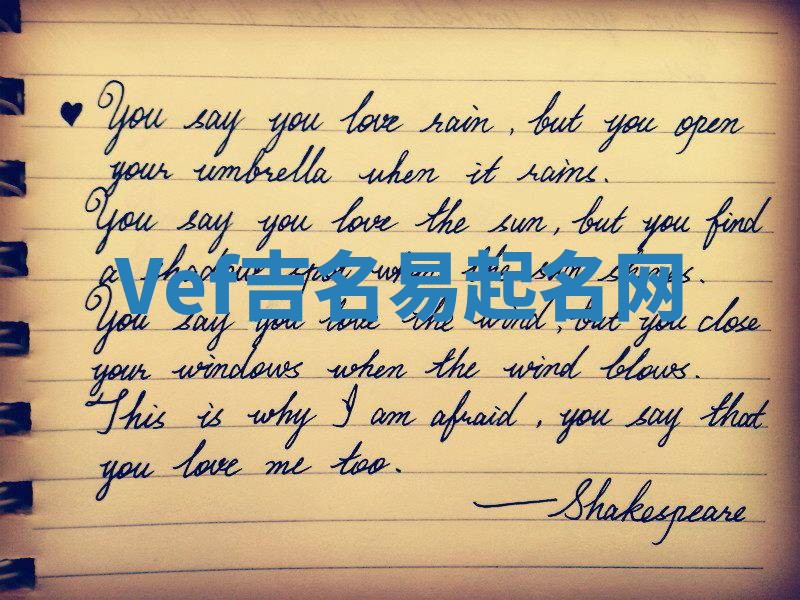 ♥ You say you love rain, but you open
your umbrella when it rains.
You say you love the sun, but you find
a shadow spot when the sun shines.
Vef吉名易起名网
You say you love the wind, but you close
your windows when the wind blows.
This is why I am afraid, you say that
you love me too.
—Shakespeare